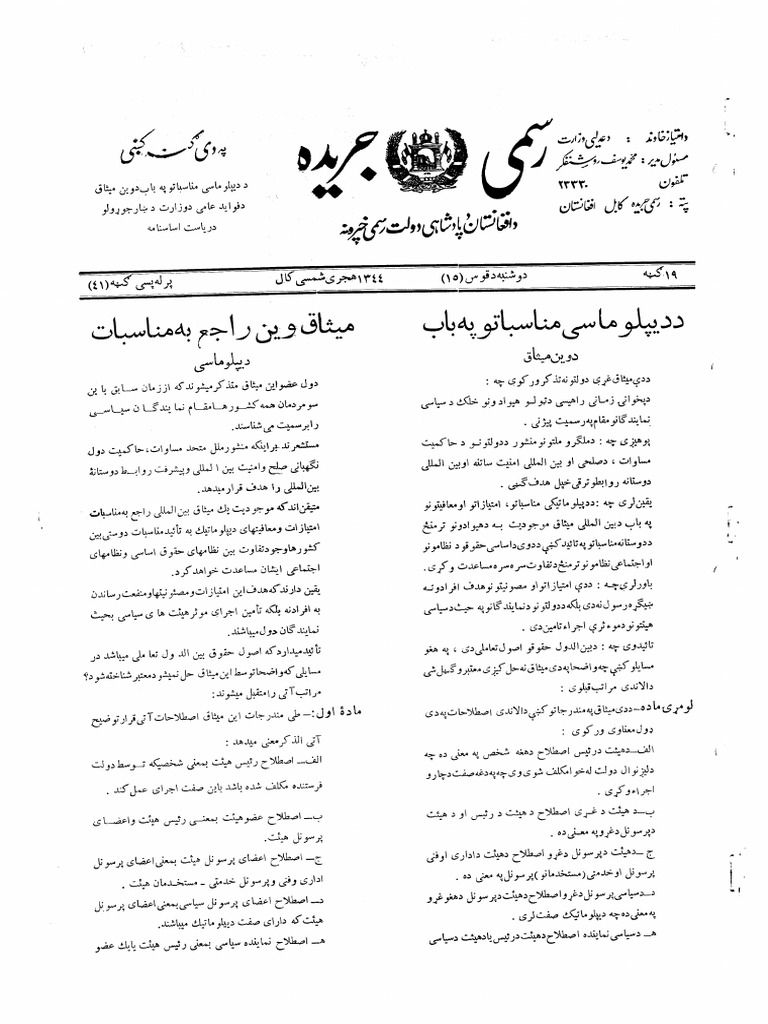 رسمی جریده
دافغانستان دپادشاهی دولت رسمی خپرونه
دامتیاز خاوند : دعدلیې وزارت
مسئول مدیر : محمد یوسف روشنفکر
تلفون ۲۳۳۳۰
پته : رسمی جریده کابل افغانستان
په دی گڼه کښی
د دیپلوماسی مناسباتو په باب دوین میثاق
دفواید عامی دوزارت د ښار جوړولو
دریاست اساسنامه
۱۹ گڼه
دوشنبه د قوس (۱۵)
۱۳۴۴ هجری شمسی کال
پرله پسی گڼه (۴۱)
ددیپلوماسی مناسباتو په باب
دوین میثاق
ددې میثاق غړی دولتونه تذکر ورکوی چه :
دپخوانی زمانی راهیسی دټولو هیوادونو خلک دسیاسی
نمایندگانو مقام په رسمیت پیژنی .
پوهیږی چه : دملگرو ملتونو منشور ددولتونو د حاکمیت
مساوات ، دصلحی او بین المللی امنیت ساتنه اوبین المللی
دوستانه روابطو ترقی خپل هدف گڼی .
یقین لری چه : ددیپلوماتیکی مناسباتو، امتیازاتو اومعافیتونو
په باب دبین المللی میثاق موجودیت به دهیوادونو ترمنځ
ددوستانه مناسباتو په تائید کښی ددوی داساسی حقوقو د نظامونو
او اجتماعی نظامونو ترمنځ دتفاوت سره سره مساعدت وکری .
باور لری چه : ددې امتیازاتو او مصونیتونو هدف افرادو ته
ښیگړه رسول نه دی بلکه ددولتونو دنمایندگانو په حیث دسیاسی
هیئتونو دموءثری اجراء تامین دی .
تائیدوی چه : دبین الدول حقوقو اصول تعاملی دی ، په هغو
مسایلو کښی چه واضحا په دی میثاق نه حل کیږی معتبر وگڼل شی
دالاندی مراتب قبلوی :
لومړی ماده – ددی میثاق په مندرجاتو کښی دالاندی اصطلاحات په دی
ډول معناوی ورکوی :
الف – دهیئت درئیس اصطلاح دهغه شخص په معنی ده چه
دلیږنوال دولت له خوا مکلف شوی وی چه په دغه صفت دچارو
اجراء وکړی .
ب – د هیئت د غړی اصطلاح د هیئت د رئیس او د هیئت
دپرسونل دغړو په معنی ده .
ج – دهیئت دپرسونل دغړو اصطلاح دهیئت داداری اوفنی
پرسونل او خدمتی (مستخدمانو) پرسونل په معنی ده .
د – دسیاسی پرسونل دغړو اصطلاح دهیئت دپرسونل دهغو غړو
په معنی ده چه دیپلوماتیک صفت لری .
هـ – دسیاسی نماینده اصطلاح دهیئت درئیس یا دهیئت دسیاسی
میثاق وین راجع به مناسبات
دیپلوماسی
دول عضو این میثاق متذکر میشوند که از زمان سابق باین
سو مردمان همه کشورها مقام نمایندگان سیاسی
را برسمیت می شناسند.
مستشعرند براینکه منشور ملل متحد مساوات، حاکمیت دول
نگهبانی صلح وامنیت بین المللی وپیشرفت روابط دوستانهٔ
بین المللی را هدف قرار میدهد.
متیقن اند که موجودیت یک میثاق بین المللی راجع به مناسبات
امتیازات ومعافیتهای دیپلوماتیک به تائید مناسبات دوستی بین
کشورها وجود تفاوت بین نظامهای حقوق اساسی ونظامهای
اجتماعی ایشان مساعدت خواهد کرد.
یقین دارند که هدف این امتیازات ومصئونیتها ومنفعت رساندن
به افراد نه بلکه تأمین اجرای موثر هیئت های سیاسی بحیث
نمایندگان دول میباشند.
تأئید میدارد که اصول حقوق بین الدول تعاملی میباشد در
مسایلی که واضحا توسط این میثاق حل نمیشود معتبر شناخته شود؟
مراتب آتی را متقبل میشوند:
مادهٔ اول:– طی مندرجات این میثاق اصطلاحات آتی قرار توضیح
آتی الذکر معنی میدهد :
الف – اصطلاح رئیس هیئت بمعنی شخصیکه توسط دولت
فرستنده مکلف شده باشد باین صفت اجرای عمل کند .
ب – اصطلاح عضو هیئت بمعنی رئیس هیئت واعضای
پرسونل هیئت.
ج – اصطلاح اعضای پرسونل هیئت بمعنی اعضای پرسونل
اداری وفنی وپرسونل خدمتی – مستخدمان هیئت .
د – اصطلاح اعضای پرسونل سیاسی بمعنی اعضای پرسونل
هیئت که دارای صفت دیپلوماتیک میباشند.
هـ – اصطلاح نماینده سیاسی بمعنی رئیس هیئت یا یک عضو